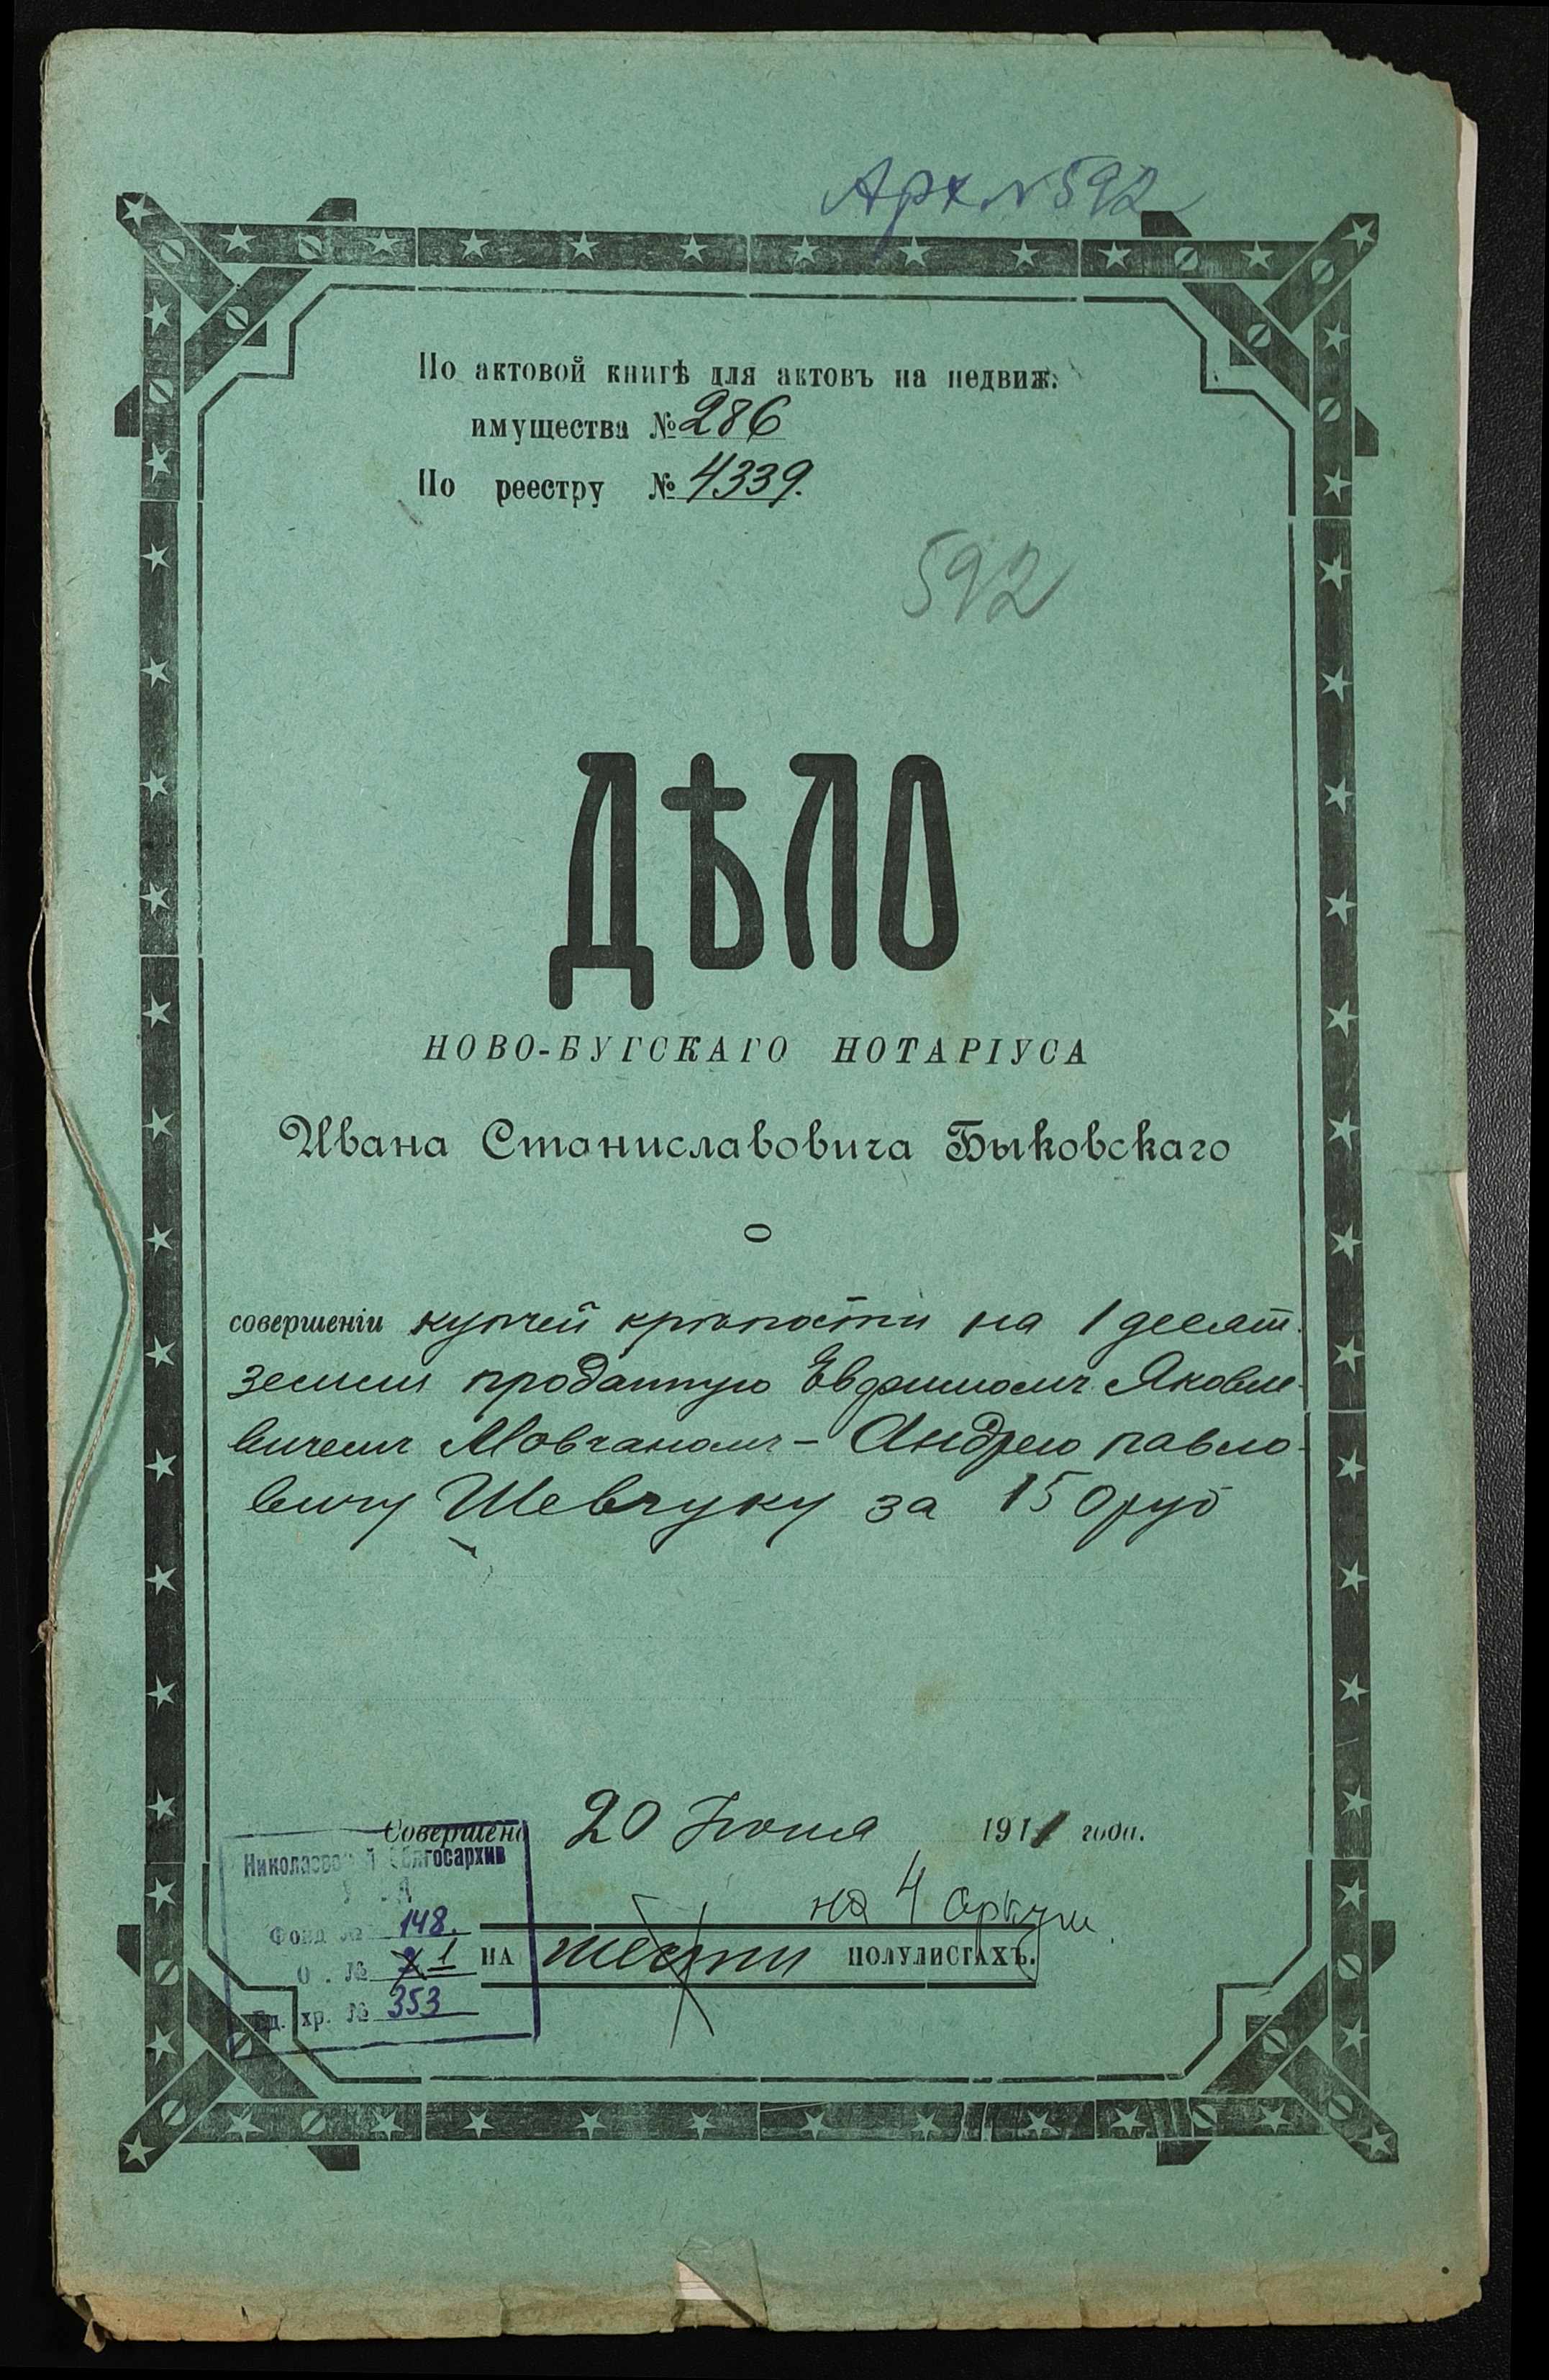 Арх N 592
По актовой книгѣ для актовъ на недвиж.
имущества № 286
По реестру № 4339.
592
ДѢЛО
НОВО-БУГСКАГО НОТАРІУСА
Ивана Станиславовича Быковскаго
О
совершеніи купчей крѣпости на 1 десят.
земли проданную Евфимомъ Яковле-
вичемъ Мовчаномъ - Андрею Павло-
вичу Шевчуку за 150 руб
Совершено 20 Іюня 1911 года.
на 4 аркуши
НА шести ПОЛУЛИСТАХЪ.
Николаевский Облгосархив
Фонд № 148.
О . № 1
Ед. хр. № 353